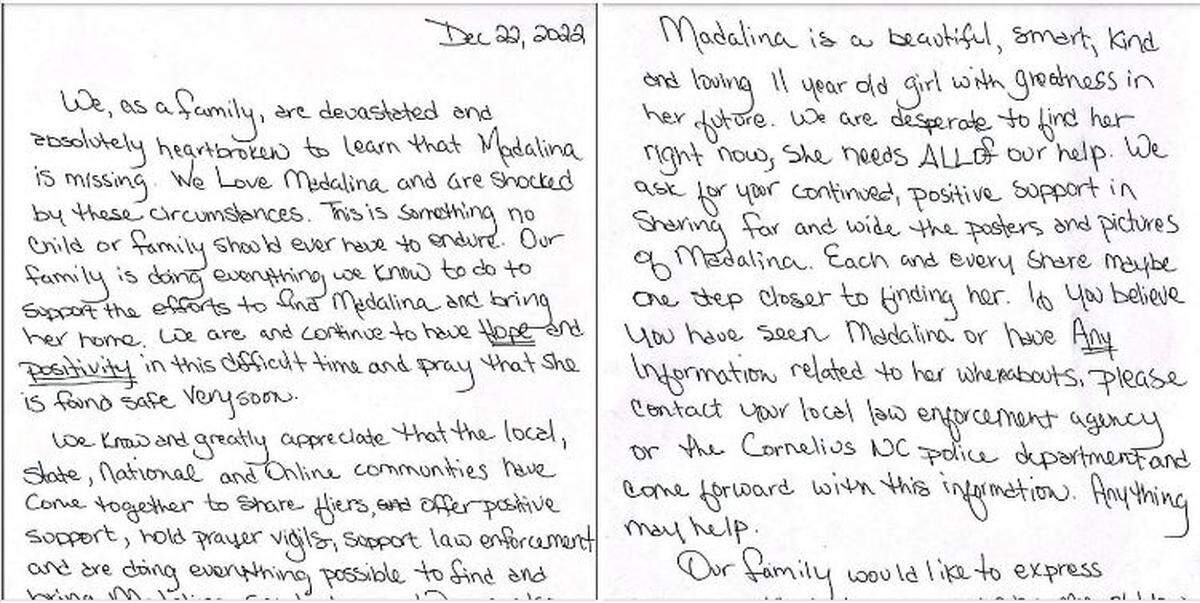 Dec 22, 2022
We, as a family, are devastated and
absolutely heartbroken to learn that Madalina
is missing. We Love Madalina and are shocked
by these circumstances. This is something no
child or family should ever have to endure. Our
family is doing everything we know to do to
support the efforts to find Madalina and bring
her home. We are and continue to have Hope and
positivity in this difficult time and pray that she
is found safe very soon.
We know and greatly appreciate that the local,
State, National and Online communities have
come together to share fliers, and offer positive
support, hold prayer vigils, support law enforcement
and are doing everything possible to find and
bring Madalina
Madalina is a beautiful, smart, kind
and loving 11 year old girl with greatness in
her future. We are desperate to find her
right now, she needs ALL of our help. We
ask for your continued, positive support in
Sharing far and wide the posters and pictures
of Madalina. Each and every share maybe
one step closer to finding her. If you believe
you have seen Madalina or have Any
Information related to her whereabouts, please
contact your local law enforcement agency
or the Cornelius NC police department and
come forward with this information. Anything
may help.
Our family would like to express